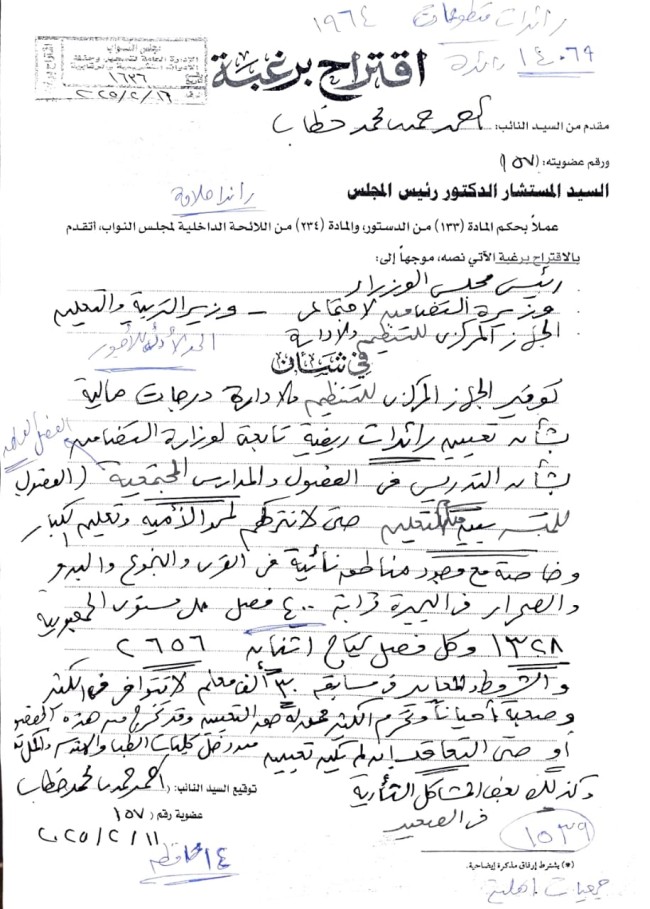 رائدات متطوعات ١٩٦٤
١٤٠٦٩ رائدة
مجلس النواب
١٦٣٦
٢٠٢٥/٢/١٦
اقتراح برغبة
مقدم من السيد النائب: أحمد حمد محمد خطاب
ورقم عضويته: (١٥٧)
السيد المستشار الدكتور رئيس المجلس
عملاً بحكم المادة (١٣٣) من الدستور، والمادة (٢٣٤) من اللائحة الداخلية لمجلس النواب، أتقدم
بالاقتراح برغبة الآتي نصه، موجهاً إلى:
رئيس مجلس الوزراء
وزيرة التضامن الاجتماعى - وزير التربية والتعليم
الجهاز المركزى للتنظيم والإدارة
الحد الأدنى للأجور
في شأن
توفير الجهاز المركزى للتنظيم والادارة درجات مالية
بشأن تعيين رائدات ريفية تابعة لوزارة التضامن
بشأن التدريس فى الفصول والمدارس المجتمعية (الفصول
حتى لا نتركهم لمحو الأمية وتعليم الكبار
وخاصة مع وجود مناطق نائية فى القرى والنجوع والبدو
والصحارى فى البحيرة قرابة ٤٠٠ فصل على مستوى الجمهورية
١٣٢٨ وكل فصل يحتاج اثنان ٢٦٥٦
والشروط والمعايير فى مسابقة ٣٠ ألف معلم لا تتوافر فى الكثير
وصعبة أحياناً وتحرم الكثير من التعيين وقد تخرج من هذه الفصول
أو حتى التعاقد إن لم يكن تعيين من دخل كليات الطب والهندسة
وكذلك بعض المشاكل الثأرية
فى الصعيد
توقيع السيد النائب: (أحمد حمد محمد خطاب
عضوية رقم: ١٥٧
٢٠٢٥/٢/١١
١٤ محافظة
١٥٣٩
(*) يشترط إرفاق مذكرة إيضاحية.
جمعيات أهلية